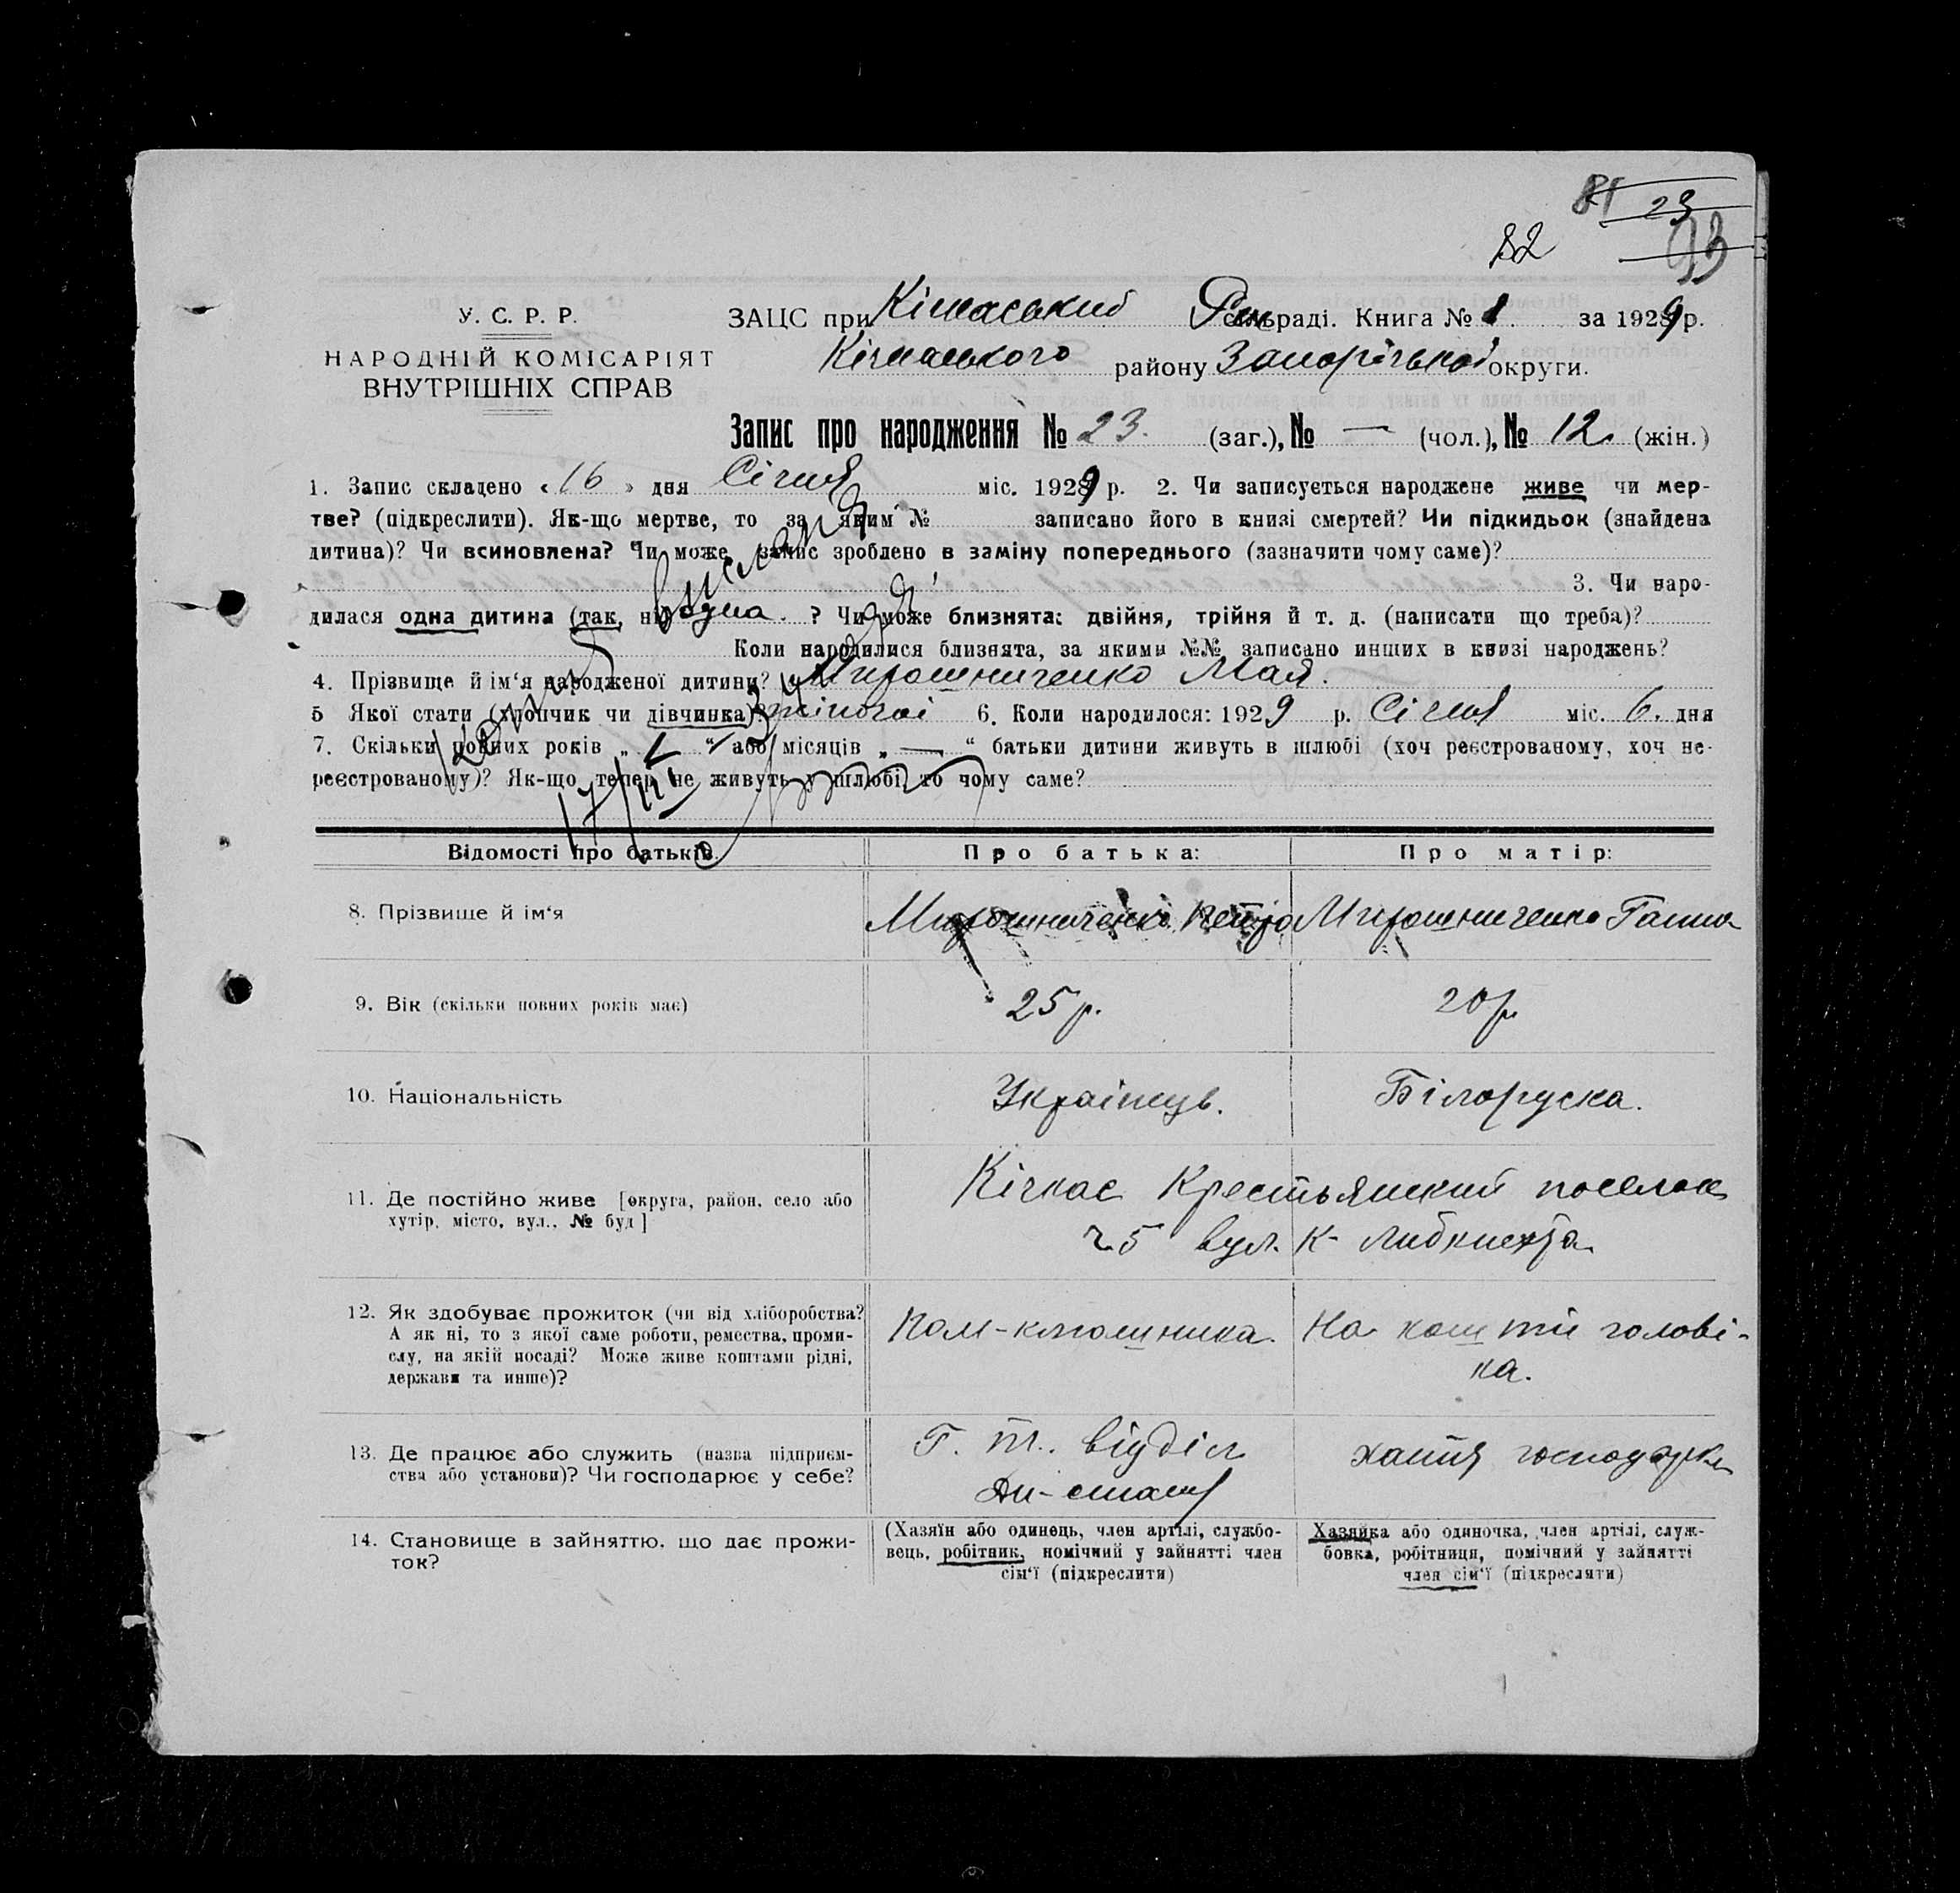 82
23
93
У. С. Р. Р.
НАРОДНІЙ КОМІСАРІЯТ
ВНУТРІШНІХ СПРАВ
ЗАЦС при Кічкаський Рай сільраді. Книга № 1 за 1929 р.
Кічкаського району Запорізької округи.
Запис про народження № 23. (заг.), № — (чол.), № 12. (жін.)
1. Запис складено « 16 » дня Січня міс. 1929 р. 2. Чи записується народжене живе чи мер-
тве? (підкреслити). Як-що мертве, то за яким № записано його в книзі смертей? Чи підкидьок (знайдена
дитина)? Чи всиновлена? Чи може запис зроблено в заміну попереднього (зазначити чому саме)?
3. Чи наро-
дилася одна дитина (так, ні) одна. ? Чи може близнята: двійня, трійня й т. д. (написати що треба)?
Коли народилися близнята, за якими №№ записано инших в книзі народжень?
4. Прізвище й ім‘я народженої дитини? Мирошниченко Мая.
5 Якої стати (хлопчик чи дівчинка)? жіночої 6. Коли народилося: 1929 р. Січня міс. 6. дня
7. Скільки повних років „ “ або місяців „ — “ батьки дитини живуть в шлюбі (хоч реєстрованому, хоч не-
реєстрованому)? Як-що тепер не живуть у шлюбі, то чому саме?
Відомості про батьків. Про батька: Про матір:
8. Прізвище й ім‘я Мирошниченко Петро Мирошниченко Ганна
9. Вік (скільки повних років має) 25 р. 20 р.
10. Національність Українець. Білоруска.
11. Де постійно живе [округа, район, село або
хутір, місто, вул., № буд]
Кічкас Крестьянский поселок
ч 5 вул. К- Либкнехта
12. Як здобуває прожиток (чи від хліборобства?
А як ні, то з якої саме роботи, ремества, проми-
слу, на якій посаді? Може живе коштами рідні,
держави та инше)?
На кошти чолові-
ка.
13. Де працює або служить (назва підприєм-
ства або установи)? Чи господарює у себе?
відділ
хатня господарка
14. Становище в зайняттю, що дає прожи-
ток?
(Хазяїн або одинець, член артілі, службо-
вець, робітник, помічний у зайнятті член
сім‘ї (підкреслити)
Хазяйка або одиночка, член артілі, служ-
бовка, робітниця, помічний у зайнятті
член сім‘ї (підкресляти)